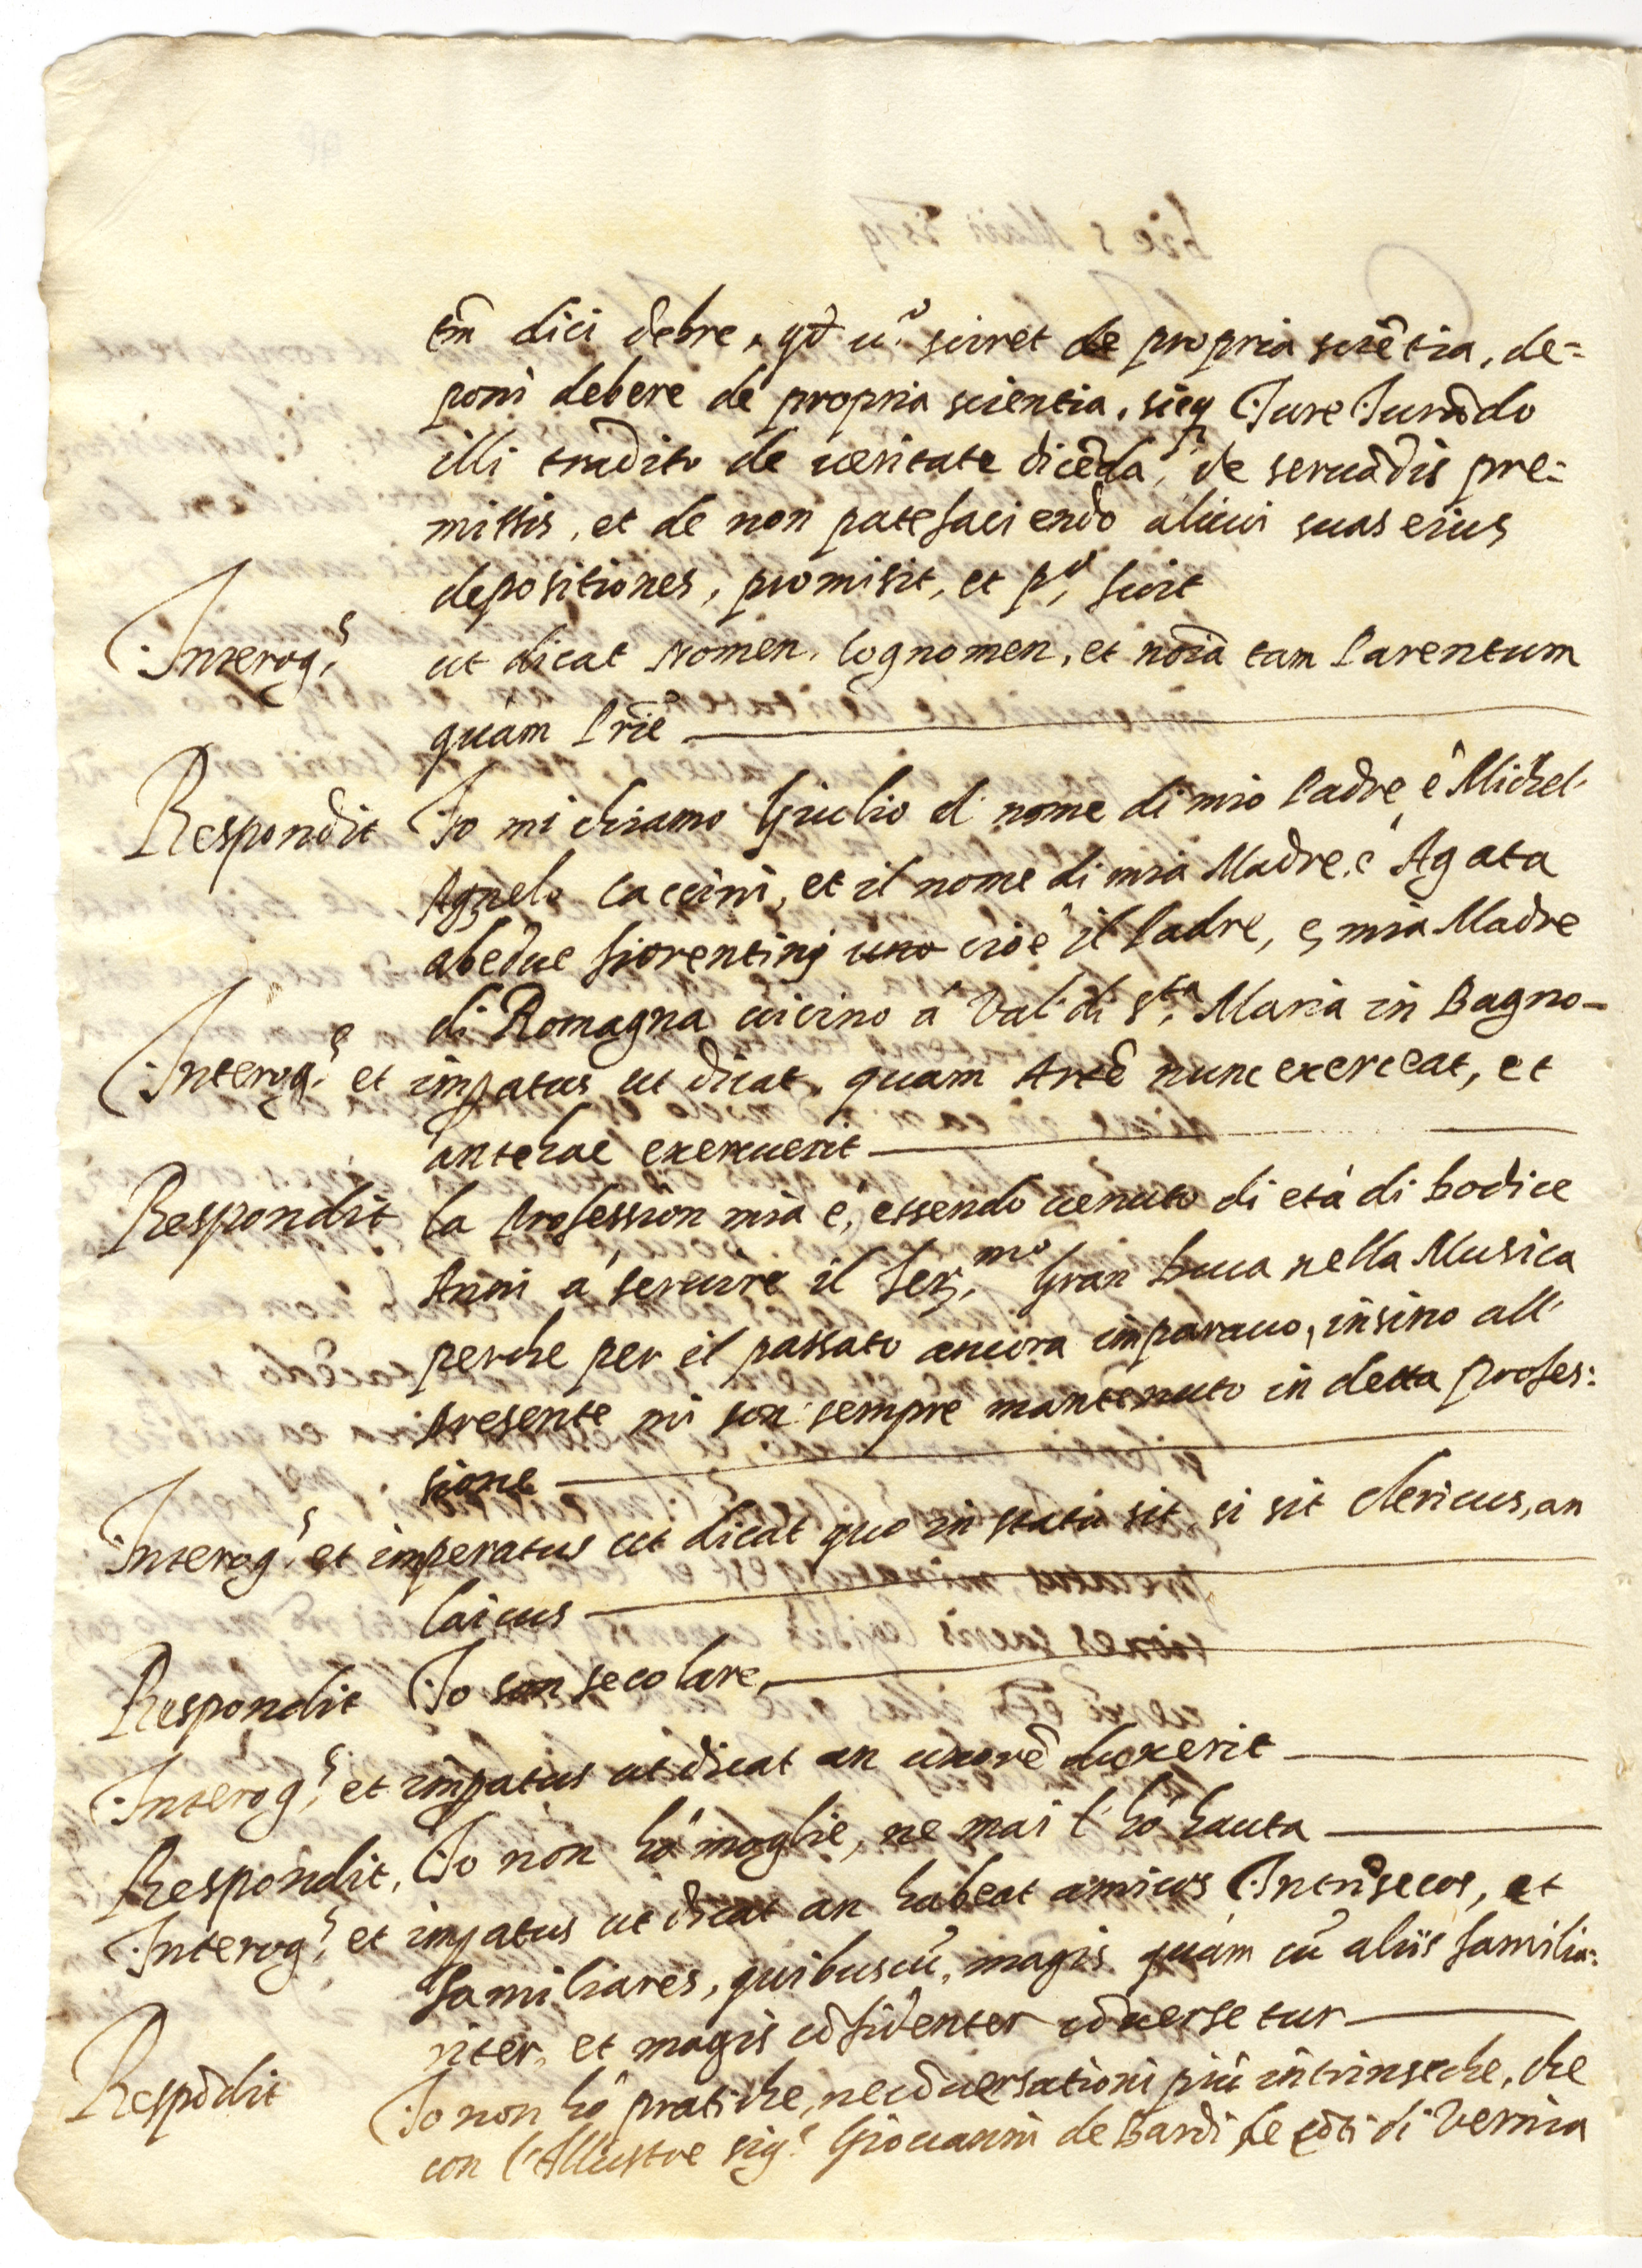 tm̄ dici debre, qd̄ u.º sciret de propria sciētia, de=
poni debere de propria scientia, sicq Jure Jurādo
illi tradito de ueritate dicēda, de seruādis pre=
missis, et de non patefaciendo alicui suas eius
depositiones, promisit, et fuit
Interog.s ut dicat Nomen, Cognomen, et noīa tam Parentum
quàm Prīe
Respondit Io mi chiamo Giulio el nome di mio Padre, è Michel'
Agnelo Caccini, et il nome di mia Madre, è Agata
abedue fiorentinj uno cioè il Padre, e, mia Madre
di Romagna uicino à Val' di S.ta Maria in Bagno-
Interog.s et imp̄atus ut dicat, quam Artē nunc exerceat, et
antehac exercuerit
Respondit La Profession mia è, essendo uenuto di età di Dodice
Anni à seruire il Ser.mo Gran Duca nella Musica
perche per il passato ancora imparauo, insino all'
presente mi son' sempre mantenuto in detta profes:
sione
Interog.s et imperatus ut dicat quo in statu sit, si sit clericus, an
laicus
Respondit Io son secolare,
Interog.s et imp̄atus ut dicat an uxorē duxerit
Respondit, Io non hò moglie, ne mai l'hò hauta
Interog.s et imp̄atus ut dicat an habeat amicos Intrīsecos, et
familiares, quibuscū, magis quàm cū aliis familia:
riter, et magis cōfidenter cōuersetur
Respōdit Io non hò pratiche, ne cōuersationi più intrinseche, che
con l'Illustre sig.r Giouanni de Bardi de cōti di Vernia